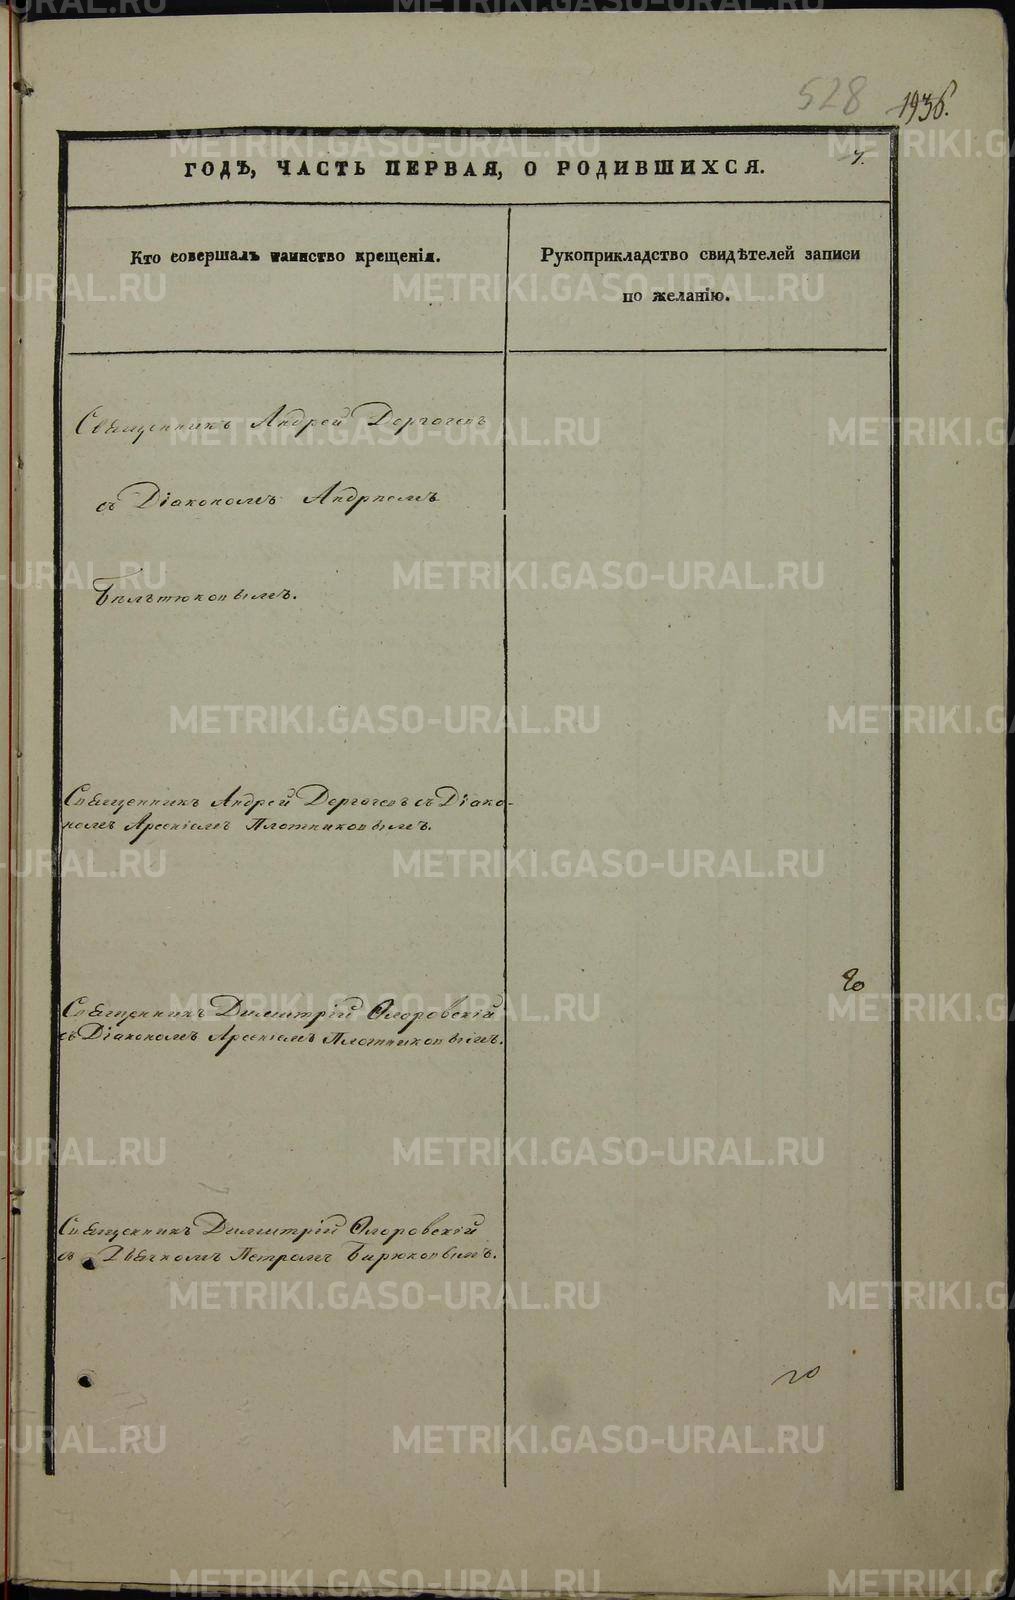 528 193б.
7.
ГОДЪ, ЧАСТЬ ПЕРВАЯ, О РОДИВШИХСЯ.
Кто совершалъ таинство крещенія.
Рукоприкладство свидѣтелей записи
по желанію.
Священникъ Андрей Дергачевъ
съ Діакономъ Андреемъ
Священникъ Андрей Дергачевъ съ Діако-
номъ Арсеніемъ Плотниковымъ.
Священникъ Димитрій Флоровскій
съ Діакономъ Арсеніемъ Плотниковымъ.
Священникъ Димитрій Флоровскій
съ Дьячкомъ Петромъ Бирюковымъ.
METRIKI.GASO-URAL.RU